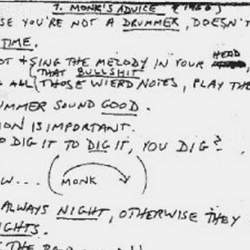 1. MONK'S ADVICE (1960)
SE YOU'RE NOT A DRUMMER, DOESN'T
TIME.
OT + SING THE MELODY IN YOUR HEAD
THAT BULLSHIT
ALL THOSE WIERD NOTES, PLAY THE
UMMER SOUND GOOD.
ION IS IMPORTANT.
O DIG IT TO DIG IT, YOU DIG?
W... MONK
ALWAYS NIGHT, OTHERWISE THEY
IGHTS.